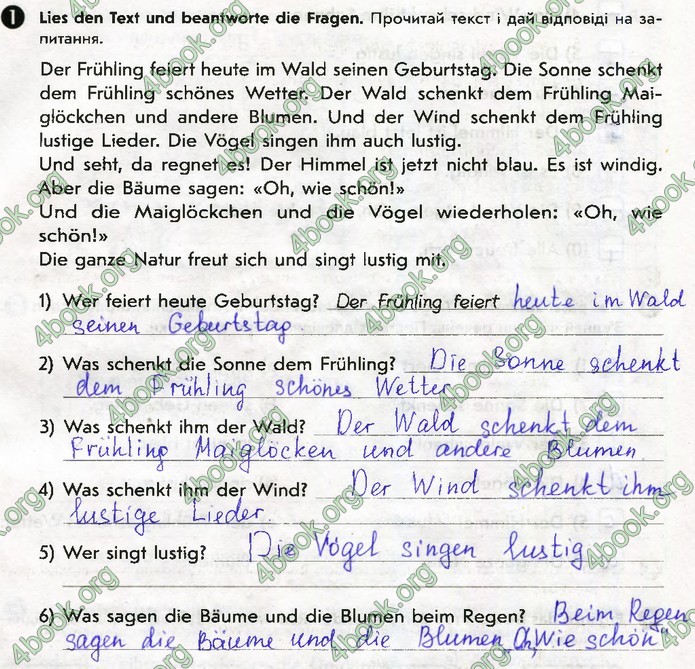 1 Lies den Text und beantworte die Fragen. Прочитай текст і дай відповіді на за-
питання.
Der Frühling feiert heute im Wald seinen Geburtstag. Die Sonne schenkt
dem Frühling schönes Wetter. Der Wald schenkt dem Frühling Mai-
glöckchen und andere Blumen. Und der Wind schenkt dem Frühling
lustige Lieder. Die Vögel singen ihm auch lustig.
Und seht, da regnet es! Der Himmel ist jetzt nicht blau. Es ist windig.
Aber die Bäume sagen: «Oh, wie schön!»
Und die Maiglöckchen und die Vögel wiederholen: «Oh, wie
schön!»
Die ganze Natur freut sich und singt lustig mit.
1) Wer feiert heute Geburtstag? Der Frühling feiert heute im Wald
seinen Geburtstag
2) Was schenkt die Sonne dem Frühling? Die Sonne schenkt
dem Frühling schönes Wetter
3) Was schenkt ihm der Wald? Der Wald schenkt dem
Frühling Maiglöcken und andere Blumen
4) Was schenkt ihm der Wind? Der Wind schenkt ihm
lustige Lieder
5) Wer singt lustig? Die Vögel singen lustig
6) Was sagen die Bäume und die Blumen beim Regen? Beim Regen
sagen die Bäume und die Blumen „Oh, Wie schön"
4book.org